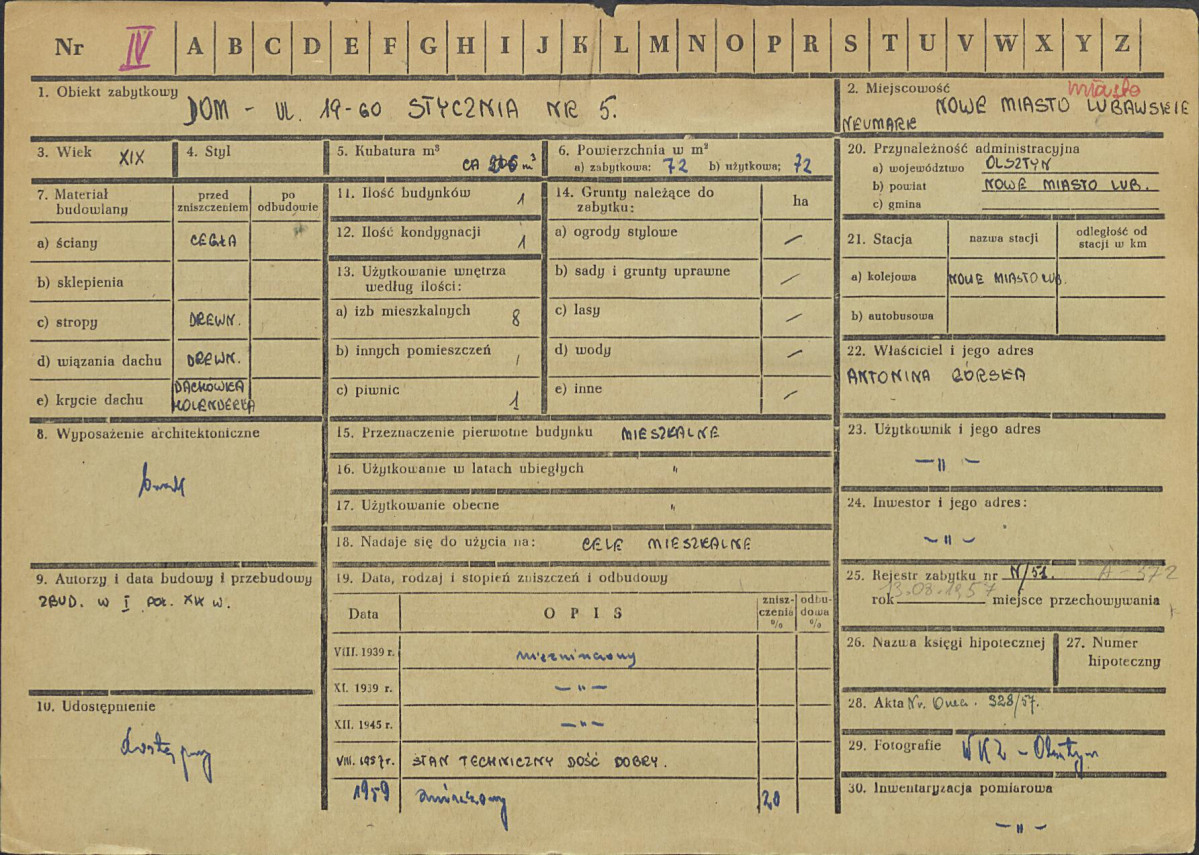 Nr IV A B C D E F G H I J K L M N O P R S T U V W X Y Z
1. Obiekt zabytkowy
DOM - UL. 19-60 STYCZNIA NR 5.
2. Miejscowość miasto
NOWE MIASTO LUBAWSKIE
NEUMARK
3. Wiek XIX
4. Styl
5. Kubatura m³
CA m³
6. Powierzchnia w m²
a) zabytkowa: 72 b) użytkowa: 72
20. Przynależność administracyjna
a) województwo OLSZTYN
b) powiat NOWE MIASTO LUB.
c) gmina
7. Materiał budowlany
przed zniszczeniem
po odbudowie
a) ściany CEGŁA
b) sklepienia
c) stropy DREWN.
d) wiązania dachu DREWN.
e) krycie dachu DACHÓWKA HOLENDERKA
11. Ilość budynków 1
12. Ilość kondygnacji 1
13. Użytkowanie wnętrza
według ilości:
a) izb mieszkalnych 8
b) innych pomieszczeń /
c) piwnic 1
14. Grunty należące do
zabytku: ha
a) ogrody stylowe —
b) sady i grunty uprawne —
c) lasy —
d) wody —
e) inne —
21. Stacja
nazwa stacji
odległość od
stacji w km
a) kolejowa NOWE MIASTO LUB.
b) autobusowa
22. Właściciel i jego adres
ANTONINA GÓRSKA
8. Wyposażenie architektoniczne
brak
15. Przeznaczenie pierwotne budynku MIESZKALNE
16. Użytkowanie w latach ubiegłych "
17. Użytkowanie obecne "
18. Nadaje się do użycia na: CELE MIESZKALNE
23. Użytkownik i jego adres
— " —
24. Inwestor i jego adres:
— " —
9. Autorzy i data budowy i przebudowy
ZBUD. W I POŁ. XIX W.
19. Data, rodzaj i stopień zniszczeń i odbudowy
Data
OPIS
znisz-
czenia
%
odbu-
dowa
%
VIII. 1939 r. niezniszczony
XI. 1939 r. — " —
XII. 1945 r. — " —
VIII. 1957 r. STAN TECHNICZNY DOŚĆ DOBRY.
1959 zniszczony 20
25. Rejestr zabytku nr N/51. A-372
rok 13.08.1957 miejsce przechowywania
26. Nazwa księgi hipotecznej
27. Numer
hipoteczny
10. Udostępnienie
dostępny
28. Akta Nr. 328/57.
29. Fotografie WKZ - Olsztyn
30. Inwentaryzacja pomiarowa
— " —